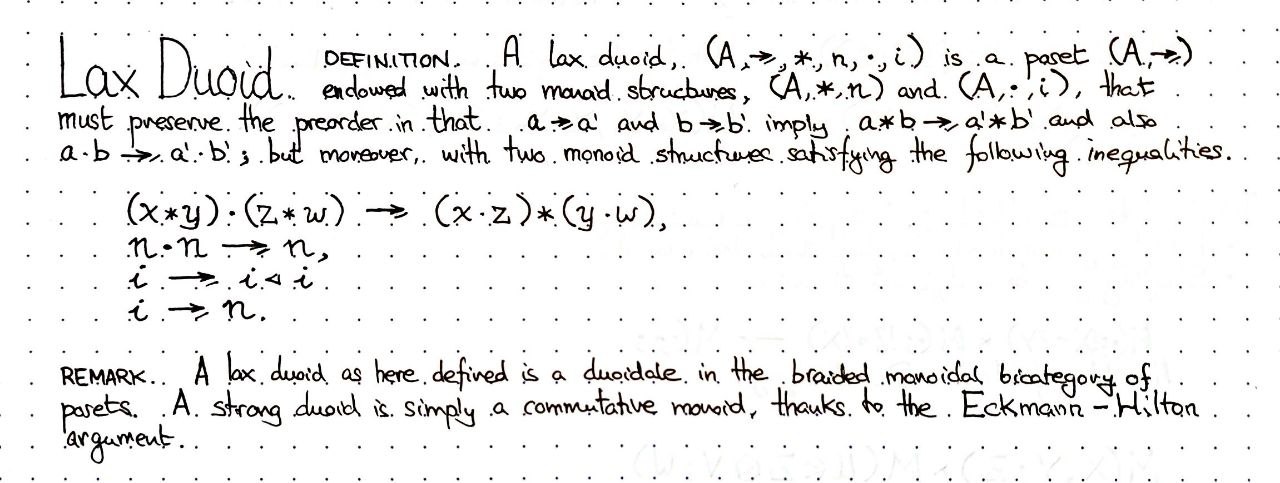 Lax Duoid. DEFINITION. A lax duoid, (A,→,*,n,·,i) is a poset (A,→)
endowed with two monoid structures, (A,*,n) and (A,·,i), that
must preserve the preorder in that a→a' and b→b' imply a*b→a'*b' and also
a·b→a'·b'; but moreover, with two monoid structures satisfying the following inequalities.
(x*y)·(z*w) → (x·z)*(y·w),
n·n → n,
i → i ◃ i
i → n.
REMARK. A lax duoid as here defined is a duoidale in the braided monoidal bicategory of
posets. A strong duoid is simply a commutative monoid, thanks to the Eckmann-Hilton
argument.